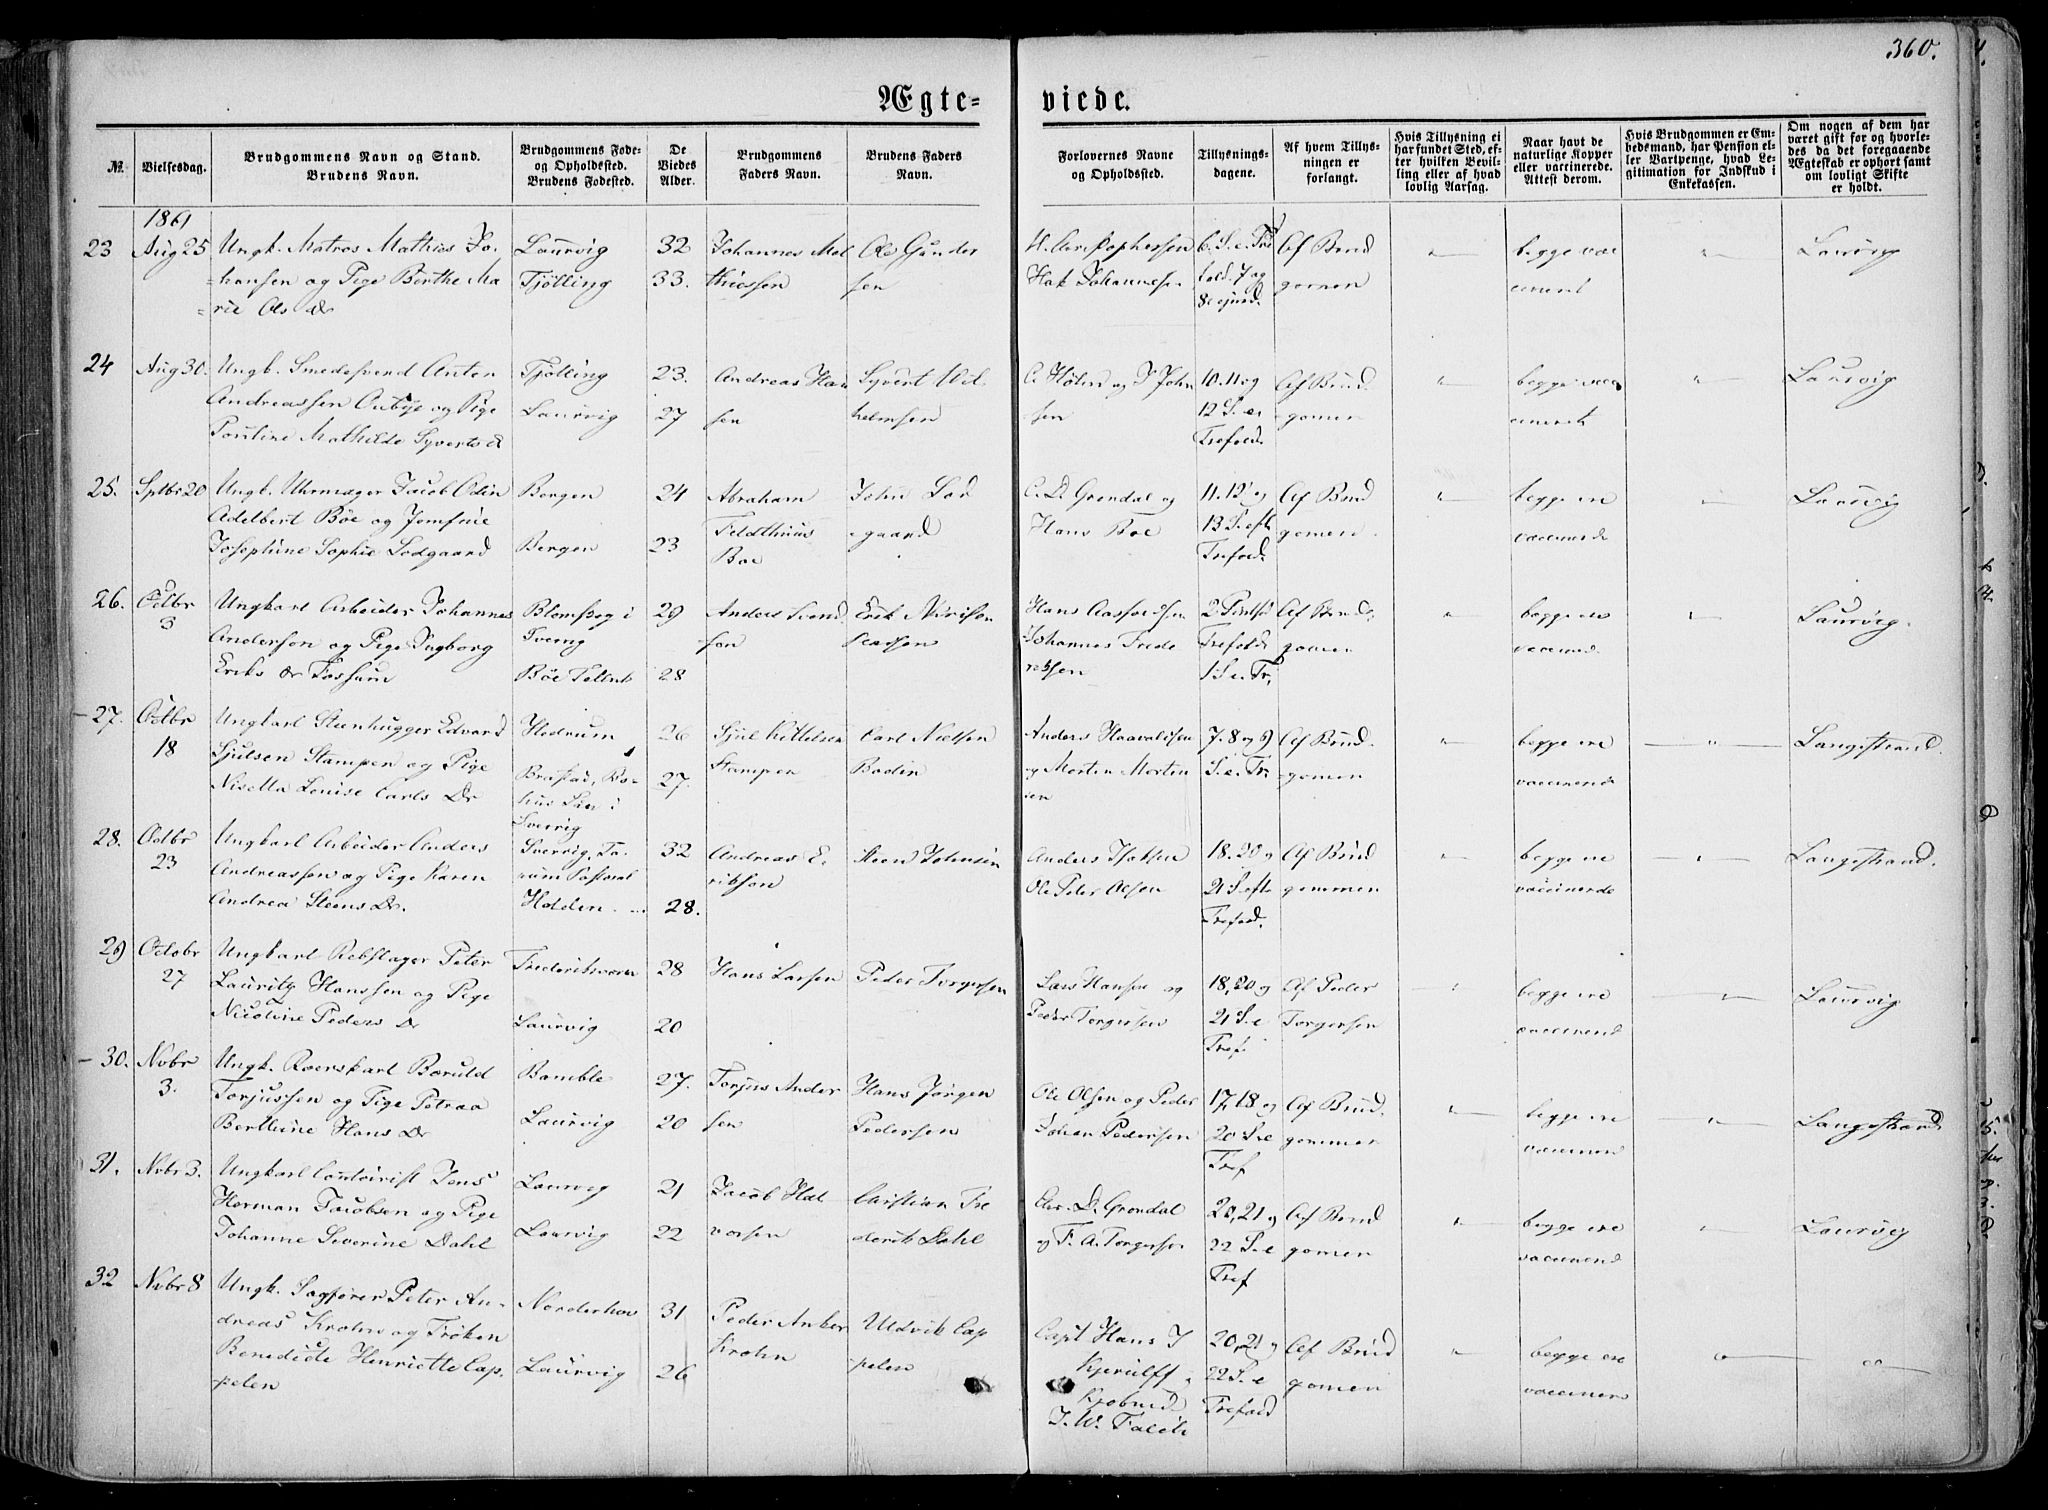 360.
Ægte-
viede.
№
Vielsesdag.
Brudgommens Navn og Stand.
Brudens Navn.
Brudgommens Føde-
og Opholdssted.
Brudens Fødested.
De
Viedes
Alder.
Brudgommens
Faders Navn.
Brudens Faders
Navn.
Forlovernes Navne
og Opholdssted.
Tillysnings-
dagene.
Af hvem Tillys-
ningen er
forlangt.
Hvis Tillysning ei
har fundet Sted, ef-
ter hvilken Bevil-
ling eller af hvad
lovlig Aarsag.
Naar havt de
naturlige Kopper
eller vaccinerede.
Attest derom.
Hvis Brudgommen er Em-
bedsmand, har Pension el-
ler Vartpenge, hvad Le-
gitimation for Indskud i
Enkekassen.
Om nogen af dem har
været gift før og hvorle-
des da det foregaaende
Ægteskab er ophørt samt
om lovligt Skifte
er holdt.
1861
23
Aug 25
Ungk. Matros Mathias Jo-
hansen og Pige Berthe Ma
rie Ols Dr
Laurvig
Tjølling
32
33.
Johannes Mat
thiessen
Ole Gunder
sen
Johannesen
6. S. e. Tre
fold. 7 og
8
Af Brud
gomen
begge vac
cineret
Laurvig
24
Aug 30.
Ungk. Smedesvend Anton
Andreassen Ouby og Pige
Pouline Mathilde Syverts d
Tjølling
Laurvig
23.
27
Andreas Han
sen
Syvert Wil
helmsen
C. Holm og J John
sen
10. 11 og
12 S. e.
Trefold.
Af Brud
gomen
begge vac
cineret
Laurvig
25.
Sptbr 20
Ungk. Uhrmager Jacob Odin
Adelbert Böe og Jomfrue
Josephine Sophie Lodgaard
Bergen
Bergen
24
23
Abraham
Feldthuus
Boe
John Lod
gaard
C. D. Grøndal og
Hans Boe
11. 12 og
13 S. eft
Trefold.
Af Brud
gomen
begge ere
vaccinerede
Laurvig
26.
Octbr
3
Ungkarl Arbeider Johannes
Anderson og Pige Ingborg
Eriks Dr Fossum
Blomskog i
Sverrig
Böe Tellem
29
28
Anders Svend
sen
Erik
Johannes Frede
riksen
Trefold
1 S. e. Tr.
Af Brud
gomen
begge ere
vaccined.
Laurvig.
27.
Octbr
18
Ungkarl Steenhugger Edvard
Sjulsen Stampen og Pige
Nisetta Louise Carls Dr
Hedrum
Brastad, Bo-
hus Län i
Sverrig
26
27.
Sjul Kittelsen
Stampen
Carl Nielsen
Bodin
Anders Haavaldsen
og Morten Morten
sen
7. 8 og 9
S. e. Tr
Af Brud
gomen
begge ere
vaccinerede
Langestrand.
28.
Octbr
23
Ungkarl Arbeider Anders
Andreassen og Pige Karen
Andrea Steens Dr.
Sverrig,
Holden
32
28.
Andreas E.
riksen
Steen Johnsen
Anders Isaksen
Ole Peter Olsen
18. 20 og
21 S. eft
Trefold.
Af Brud
gommen
begge ere
vaccinerede
Langestrand.
29
Octobr
27
Ungkarl Rebslager Peter
Lauritz Hanssen og Pige
Nicoline Peders Dr
Frederiksværn
Laurvig
28
20
Hans Larsen
Peder Torgersen
Lars Hansen og
Peder Torgersen
18, 20 og
21 S. e
Tref.
Af Peder
Torgersen
begge ere
vaccinerede
Laurvig
30.
Novbr
3.
Ungk. Roerskarl Boruld
Torjussen og Pige Petraa
Berthine Hans Dr
Bamble
Laurvig
27.
20
Torjus Ander
sen
Hans Jørgen
Pedersen
Ole Olsen og Peder
Johan Pedersen
17, 18 og
20 S. e
Tref
Af Brud.
gommen
begge ere
vaccinere
Langestrand
31.
Nvbr 3.
Ungkarl Contoirist Jens
Herman Jacobsen og Pige
Johanne Severine Dahl
Laurvig
Laurvig
21
22
Jacob Hal
vorsen
Christian Fre
derik Dahl
Chr. D. Grøndal
og F. A. Torgersen
20, 21 og
22 S. e
Tref
Af Brud
gomen
begge ere
vaccinerede
Laurvig
32
Nvbr 8
Ungk. Sagfører Peter An-
dreas Krohn og Frøken
Benedicte Henriette Cap-
pelen
Norderhov
Laurvig
31
26
Peder Anker
Krohn
Uldrik Cap
pelen
Capt Hans J
Kjerulff
J. W.
20, 21 og
22 S. e
Trefold
Af Brud
gomen
begge ere
vaccinere